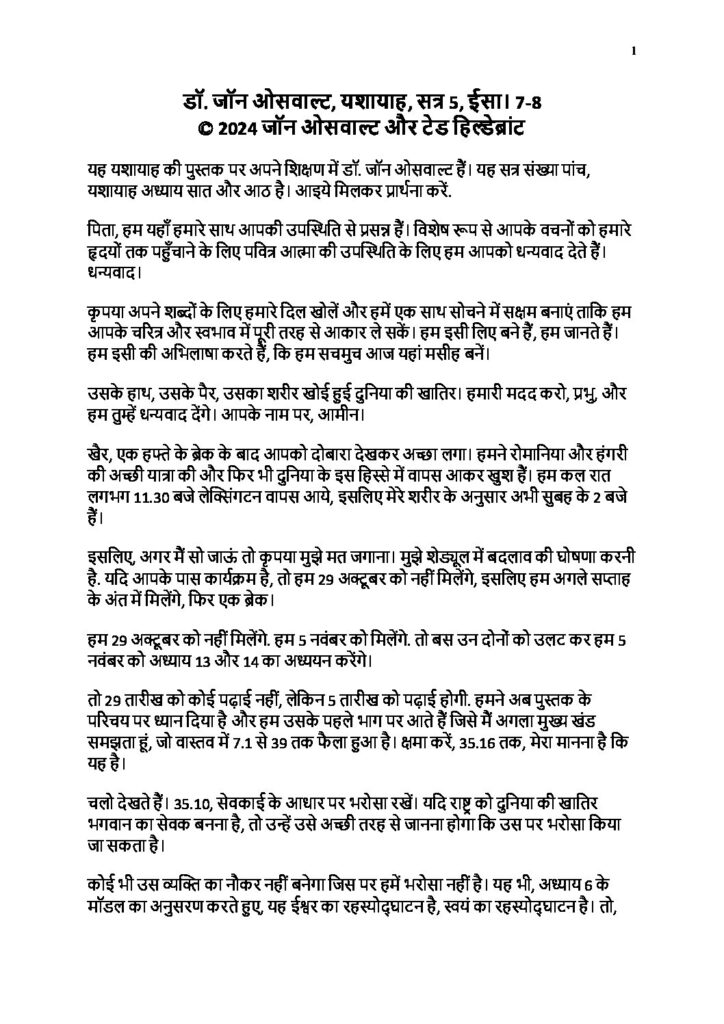 1
डॉ. जॉन ओसवाल्ट, यशायाह, सत्र 5, ईसा। 7-8
© 2024 जॉन ओसवाल्ट और टेड हिल्डेब्रांट
यह यशायाह की पुस्तक पर अपने शिक्षण में डॉ. जॉन ओसवाल्ट हैं। यह सत्र संख्या पांच,
यशायाह अध्याय सात और आठ है। आइये मिलकर प्रार्थना करें.
पिता, हम यहाँ हमारे साथ आपकी उपस्थिति से प्रसन्न हैं। विशेष रूप से आपके वचनों को हमारे
हृदयों तक पहुँचाने के लिए पवित्र आत्मा की उपस्थिति के लिए हम आपको धन्यवाद देते हैं।
धन्यवाद।
कृपया अपने शब्दों के लिए हमारे दिल खोलें और हमें एक साथ सोचने में सक्षम बनाएं ताकि हम
आपके चरित्र और स्वभाव में पूरी तरह से आकार ले सकें। हम इसी लिए बने हैं, हम जानते हैं।
हम इसी की अभिलाषा करते हैं, कि हम सचमुच आज यहां मसीह बनें।
उसके हाथ, उसके पैर, उसका शरीर खोई हुई दुनिया की खातिर। हमारी मदद करो, प्रभु, और
हम तुम्हें धन्यवाद देंगे। आपके नाम पर, आमीन।
खैर, एक हफ्ते के ब्रेक के बाद आपको दोबारा देखकर अच्छा लगा। हमने रोमानिया और हंगरी
की अच्छी यात्रा की और फिर भी दुनिया के इस हिस्से में वापस आकर खुश हैं। हम कल रात
लगभग 11.30 बजे लेक्सिंगटन वापस आये, इसलिए मेरे शरीर के अनुसार अभी सुबह के 2 बजे
हैं।
इसलिए, अगर मैं सो जाऊं तो कृपया मुझे मत जगाना। मुझे शेड्यूल में बदलाव की घोषणा करनी
है. यदि आपके पास कार्यक्रम है, तो हम 29 अक्टूबर को नहीं मिलेंगे, इसलिए हम अगले सप्ताह
के अंत में मिलेंगे, फिर एक ब्रेक।
हम 29 अक्टूबर को नहीं मिलेंगे. हम 5 नवंबर को मिलेंगे. तो बस उन दोनों को उलट कर हम 5
नवंबर को अध्याय 13 और 14 का अध्ययन करेंगे।
तो 29 तारीख को कोई पढ़ाई नहीं, लेकिन 5 तारीख को पढ़ाई होगी. हमने अब पुस्तक के
परिचय पर ध्यान दिया है और हम उसके पहले भाग पर आते हैं जिसे मैं अगला मुख्य खंड
समझता हूं, जो वास्तव में 7.1 से 39 तक फैला हुआ है। क्षमा करें, 35.16 तक, मेरा मानना है कि
यह है।
चलो देखते हैं। 35.10, सेवकाई के आधार पर भरोसा रखें। यदि राष्ट्र को दुनिया की खातिर
भगवान का सेवक बनना है, तो उन्हें उसे अच्छी तरह से जानना होगा कि उस पर भरोसा किया
जा सकता है।
कोई भी उस व्यक्ति का नौकर नहीं बनेगा जिस पर हमें भरोसा नहीं है। यह भी, अध्याय 6 के
मॉडल का अनुसरण करते हुए, यह ईश्वर का रहस्योद्घाटन है, स्वयं का रहस्योद्घाटन है। तो,